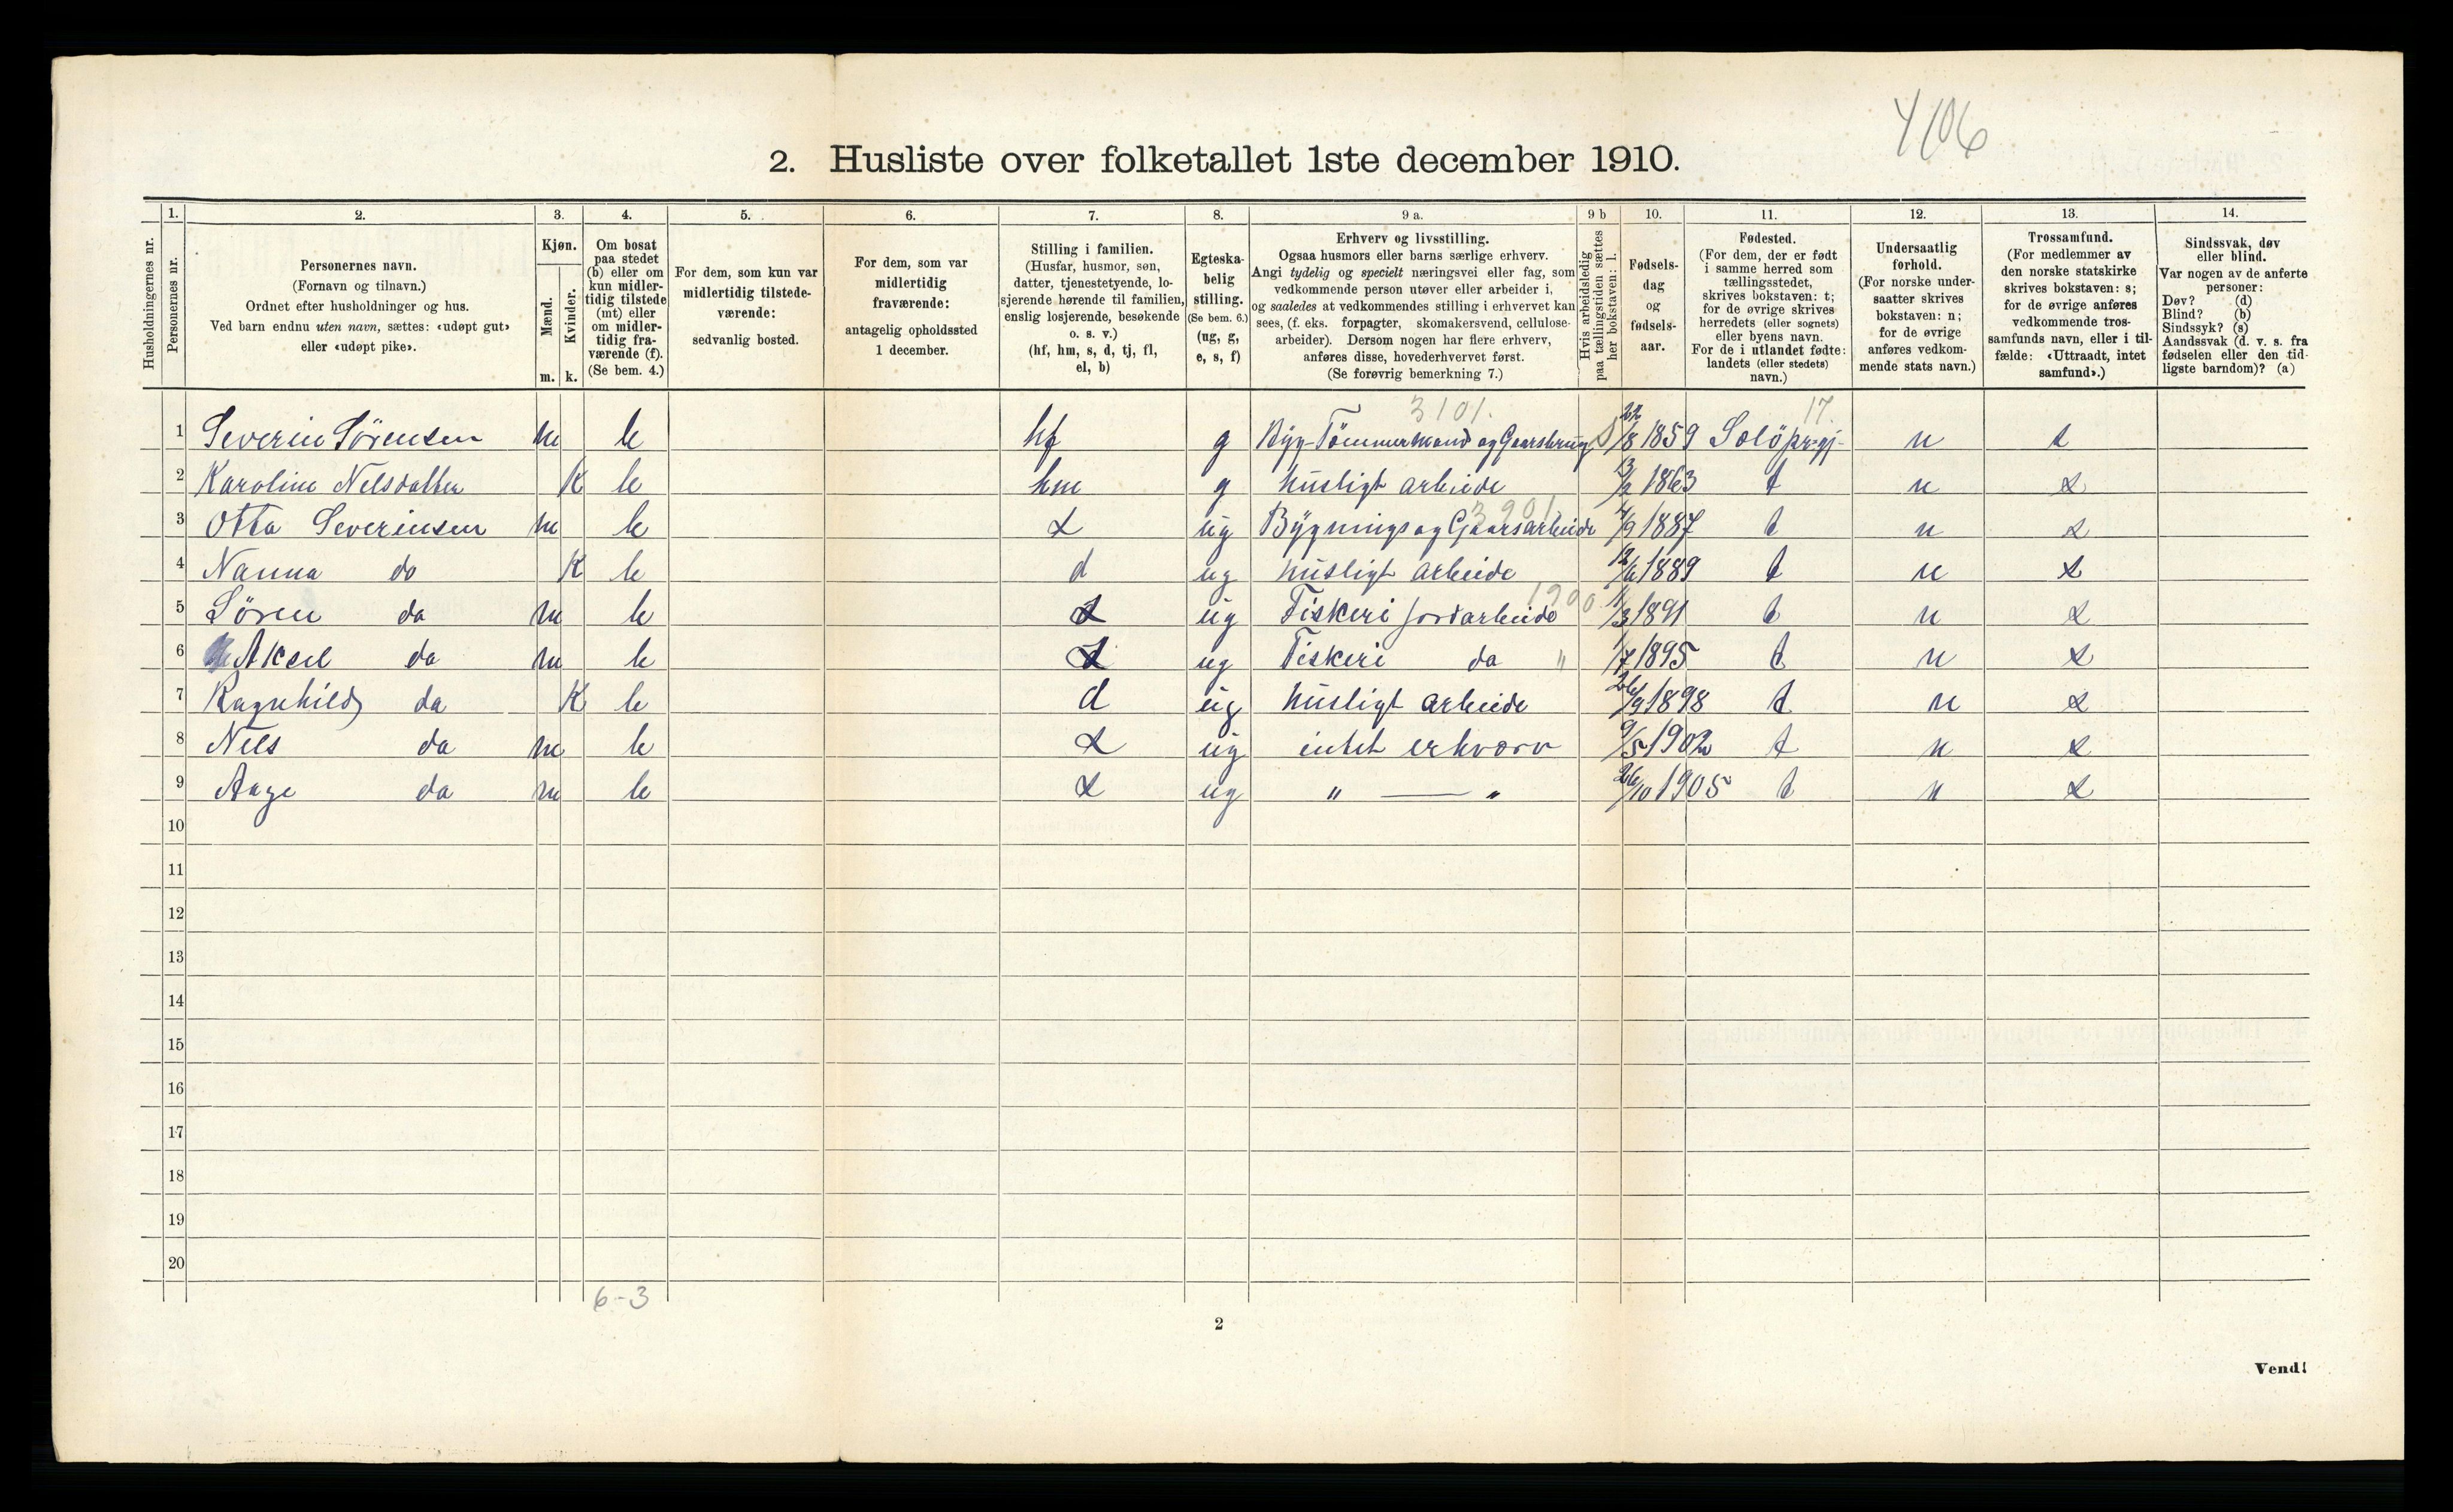 4106
2. Husliste over folketallet 1ste december 1910.
Husholdningernes nr.
1.
Personernes nr.
2.
Personernes navn.
(Fornavn og tilnavn.)
Ordnet efter husholdninger og hus.
Ved barn endnu uten navn, sættes: «udøpt gut»
eller «udøpt pike».
3.
Kjøn.
Mænd.
Kvinder.
m. k.
4.
Om bosat
paa stedet
(b) eller om
kun midler-
tidig tilstede
(mt) eller
om midler-
tidig fra-
værende (f).
(Se bem. 4.)
5.
For dem, som kun var
midlertidig tilstede-
værende:
sedvanlig bosted.
6.
For dem, som var
midlertidig
fraværende:
antagelig opholdssted
1 december.
7.
Stilling i familien.
(Husfar, husmor, søn,
datter, tjenestetyende, lo-
sjerende hørende til familien,
enslig losjerende, besøkende
o. s. v.)
(hf, hm, s, d, tj, fl,
el, b)
8.
Egteska-
belig
stilling.
(Se bem. 6.)
(ug, g,
e, s, f)
9 a.
Erhverv og livsstilling.
Ogsaa husmors eller barns særlige erhverv.
Angi tydelig og specielt næringsvei eller fag, som
vedkommende person utøver eller arbeider i,
og saaledes at vedkommendes stilling i erhvervet kan
sees, (f. eks. forpagter, skomakersvend, cellulose-
arbeider). Dersom nogen har flere erhverv,
anføres disse, hovederhvervet først.
(Se forøvrig bemerkning 7.)
9 b
Hvis arbeidsledig
paa tællingstiden sættes
her bokstaven: l.
10.
Fødsels-
dag
og
fødsels-
aar.
11.
Fødested.
(For dem, der er født
i samme herred som
tællingsstedet,
skrives bokstaven: t;
for de øvrige skrives
herredets (eller sognets)
eller byens navn.
For de i utlandet fødte:
landets (eller stedets)
navn.)
12.
Undersaatlig
forhold.
(For norske under-
saatter skrives
bokstaven: n;
for de øvrige
anføres vedkom-
mende stats navn.)
13.
Trossamfund.
(For medlemmer av
den norske statskirke
skrives bokstaven: s;
for de øvrige anføres
vedkommende tros-
samfunds navn, eller i til-
fælde: «Uttraadt, intet
samfund».)
14.
Sindssvak, døv
eller blind.
Var nogen av de anførte
personer:
Døv? (d)
Blind? (b)
Sindssyk? (s)
Aandssvak (d. v. s. fra
fødselen eller den tid-
ligste barndom)? (a)
3101. 17.
1 Severin Sørensen m b hf g Byg-Tömmermand og Gaarsbrug 22/8 1859 n s
2 Karoline Nelsdatter K b hm g husligt arbeide 13/2 1863 t n s
3901
3 Otto Severinsen m b s ug Bygnings og Gaarsarbeide 4/9 1887 t n s
4 Nanna do K b d ug husligt arbeide 12/6 1889 t n s
1900
5 Sören do m b s ug Fiskeri jordarbeide 11/3 1891 t n s
6 Aksel do m b s ug Fiskeri do " 1/7 1895 t n s
7 Ragnhild do K b d ug husligt arbeide 26/9 1898 t n s
8 Nels do m b s ug intet erhverv 9/5 1902 t n s
9 Aage do m b s ug " — " 26/10 1905 t n s
10
11
12
13
14
15
16
17
18
19
20
6-3
2
Vend!